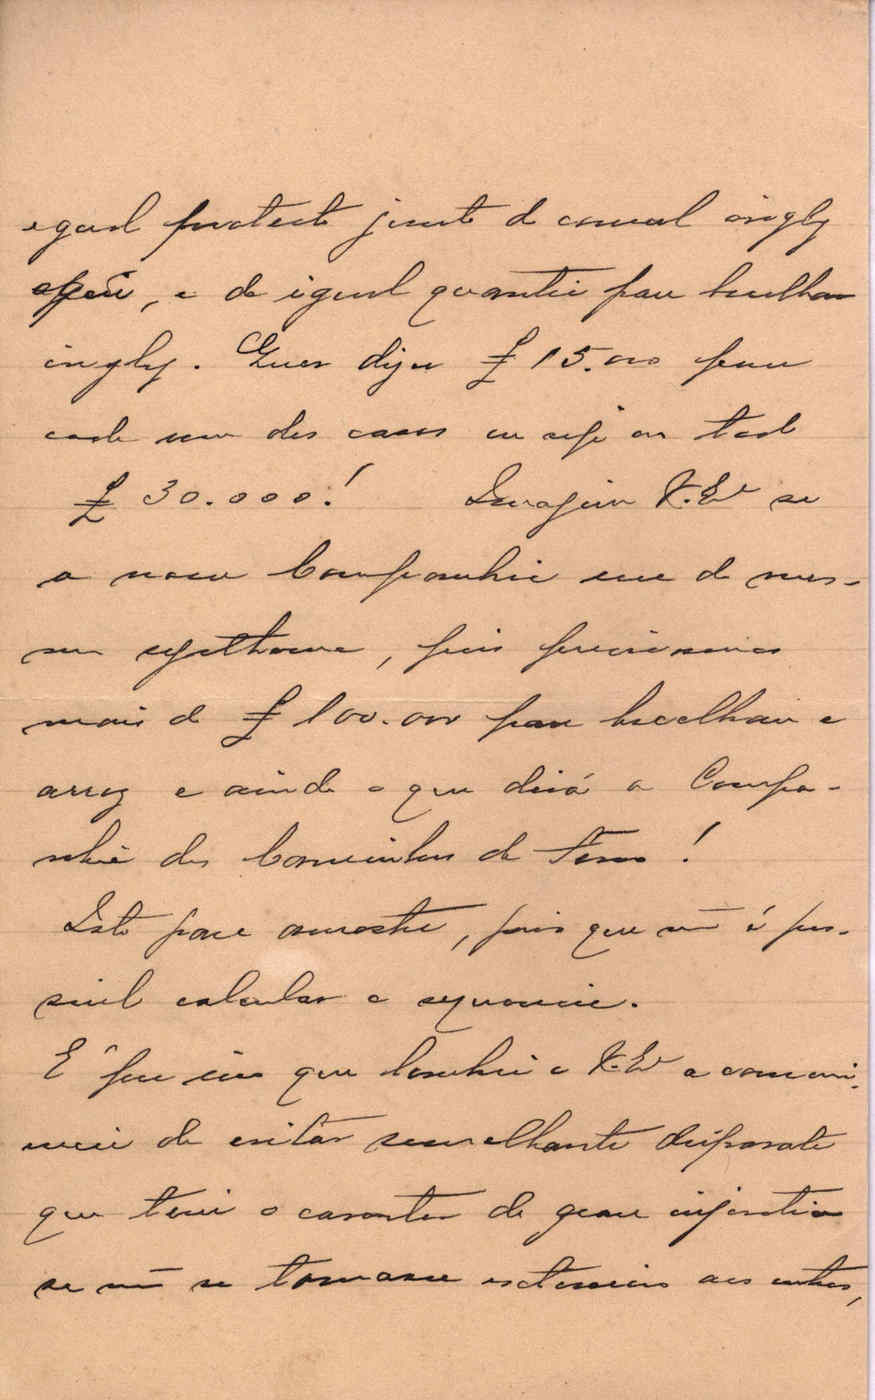 egual protesto junto do consul inglez
, e de igual quantia para bacalhau
inglez. Quer dizer £ 15.000 para
cada um dos casos ou seja um total
£ 30.000! Imagine V. Exª se
a nossa Companhia usa do mes-
mo systhema, pois precisamos
mais de £ 100.000 para bacalhau e
arroz e ainda o que dirá a Compa-
nhia dos Caminhos de Ferro!
Isto para amostra, pois que não é pos-
sivel calcular a sequencia.
É por isso que lembrei a V. Exª a conveni-
encia de evitar semelhante disparate
que teria o caracter de grave injustiça
se não se tornasse extensivo aos outros,